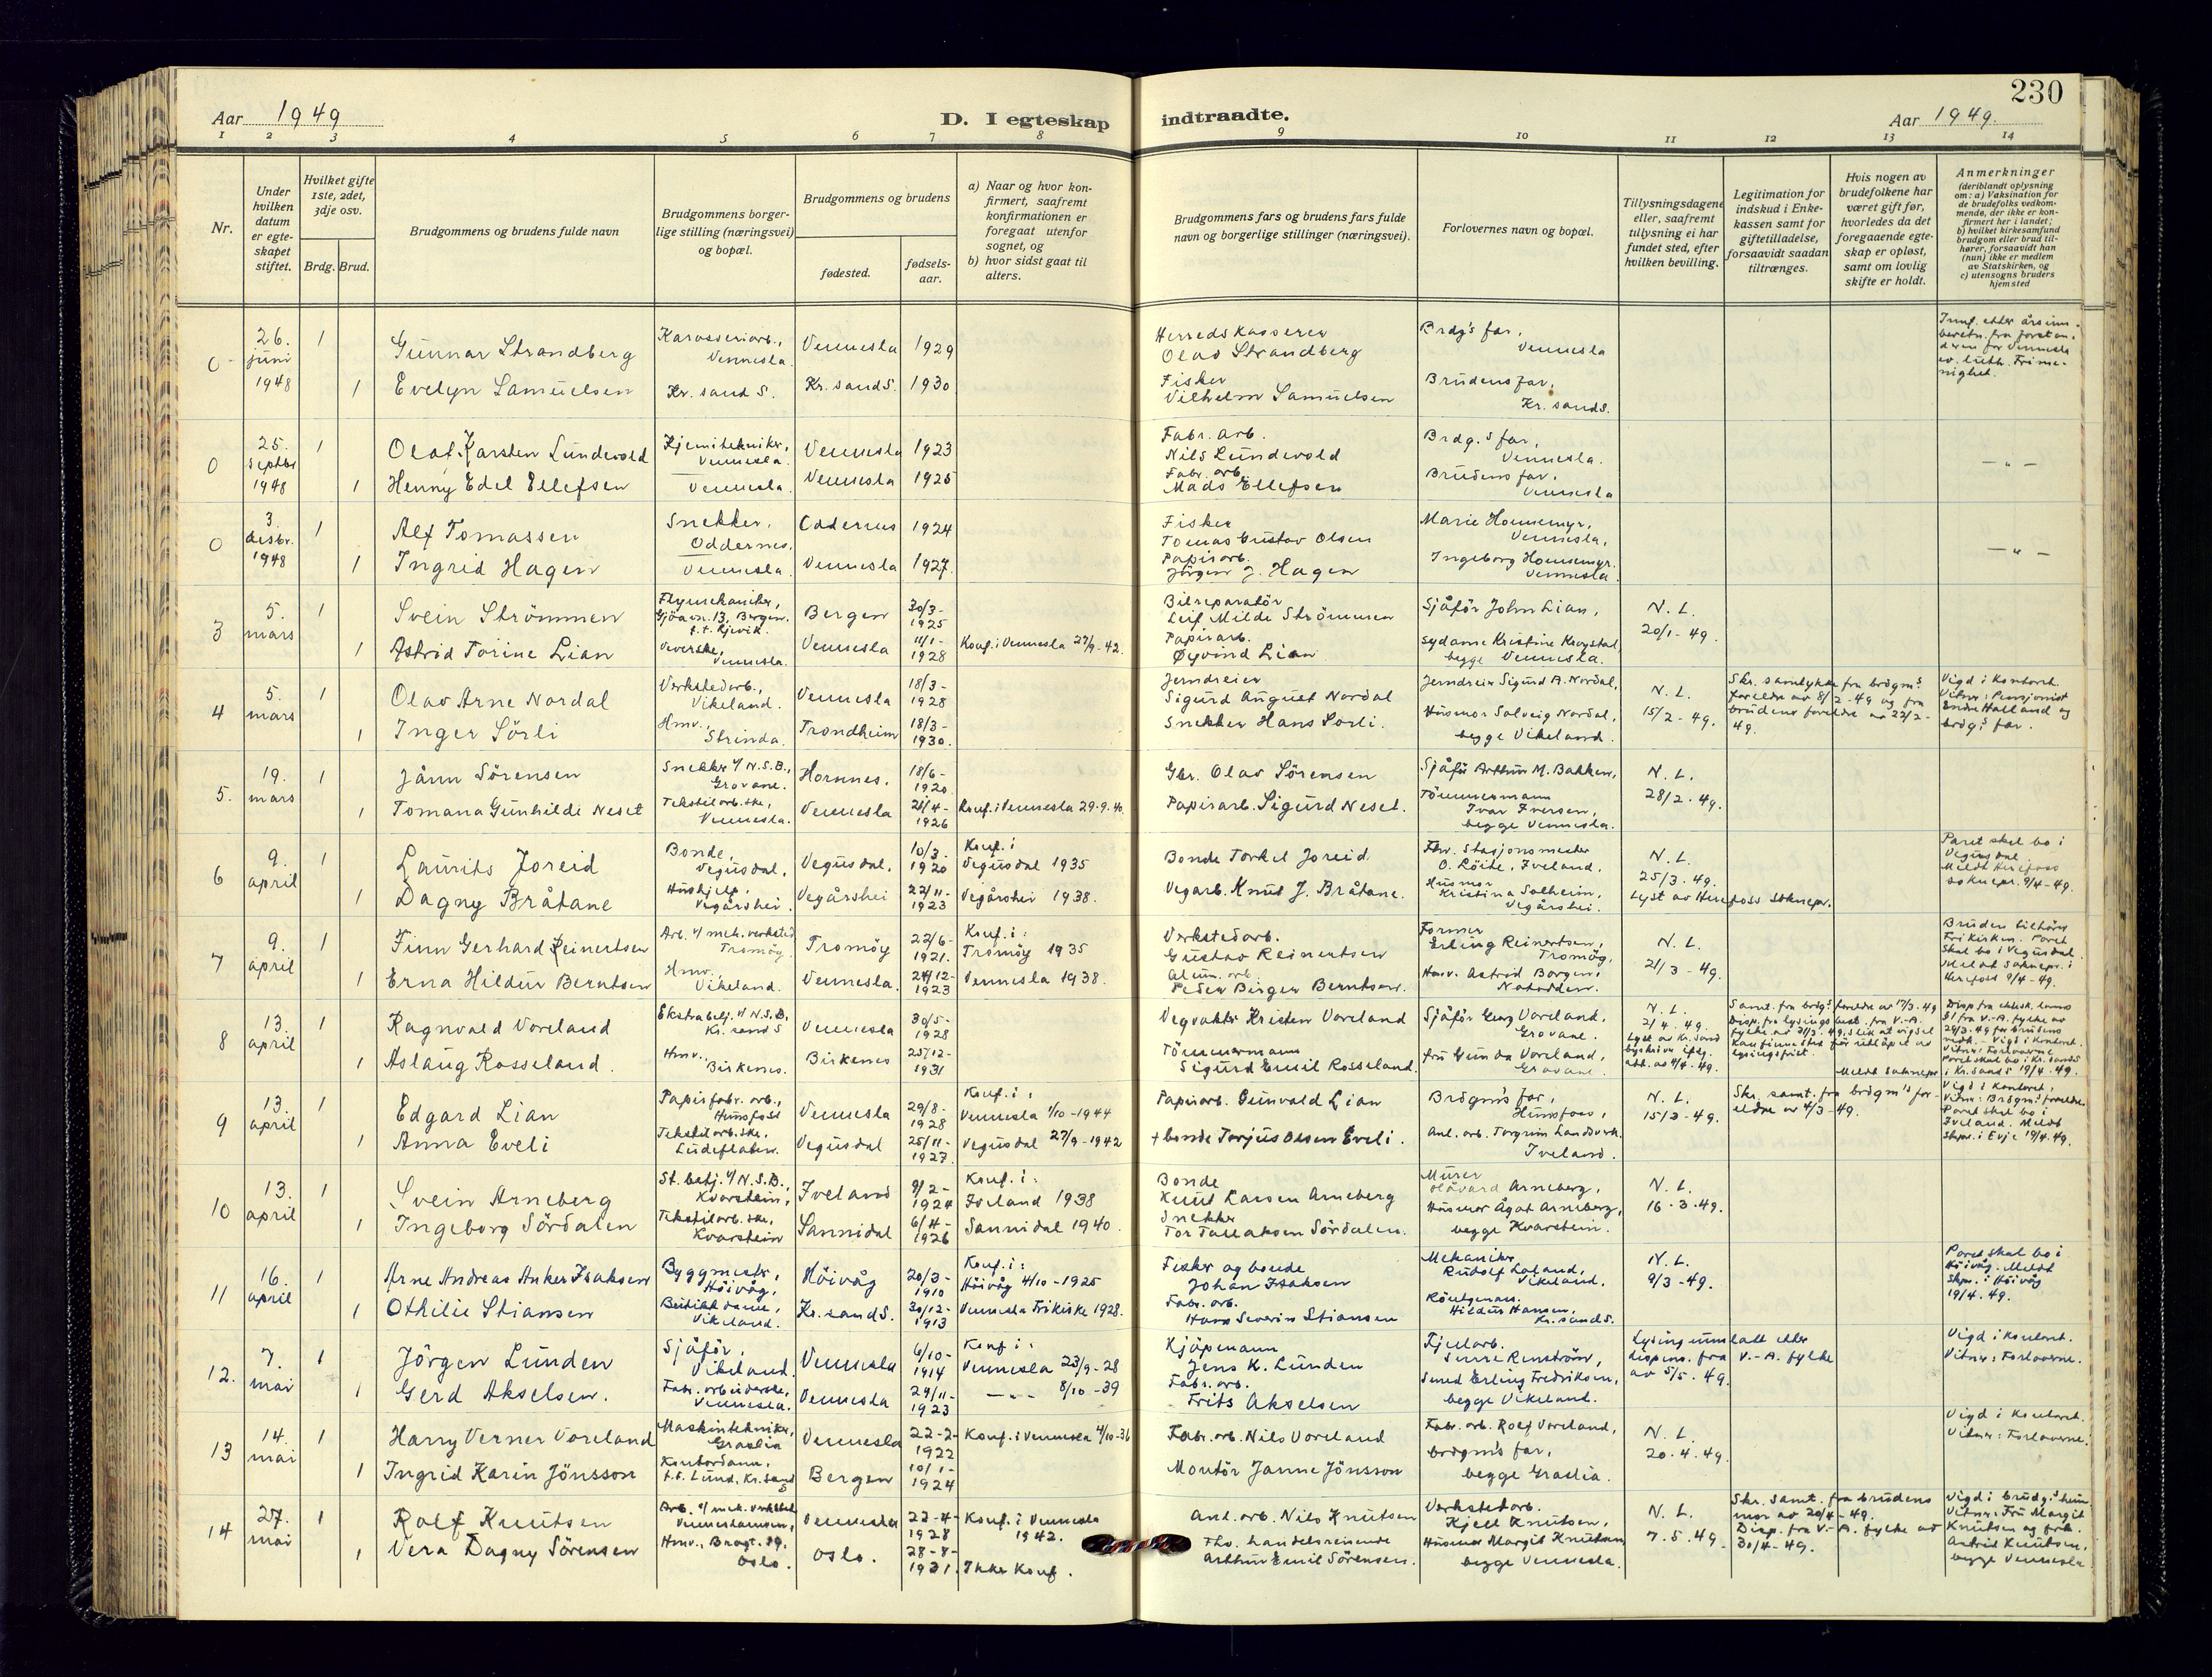 230
Aar 1949
D. Iegteskap indtraadte.
Aar 1949.
1 2 3 4 5 6 7 8 9 10 11 12 13 14
Nr.
Under hvilken datum er egteskapet stiftet.
Hvilket gifte 1ste, 2det, 3dje osv.
Brdg. Brud.
Brudgommens og brudens fulde navn
Brudgommens borgerlige stilling (næringsvei) og bopæl.
Brudgommens og brudens
fødested.
fødselsaar.
a) Naar og hvor konfirmert, saafremt konfirmationen er foregaat utenfor sognet, og
b) hvor sidst gaat til alters.
Brudgommens fars og brudens fars fulde navn og borgerlige stillinger (næringsvei).
Forlovernes navn og bopæl.
Tillysningsdagene eller, saafremt tillysning ei har fundet sted, efter hvilken bevilling.
Legitimation for indskud i Enkekassen samt for giftetilladelse, forsaavidt saadan tiltrænges.
Hvis nogen av brudefolkene har været gift før, hvorledes da det foregaaende egteskap er opløst, samt om lovlig skifte er holdt.
Anmerkninger (deriblandt oplysning om: a) Vaksination for de brudefolks vedkommende, der ikke er konfirmert her i landet; b) hvilket kirkesamfund brudgom eller brud tilhører, forsaavidt han (hun) ikke er medlem av Statskirken, og c) utensogns bruders hjemsted
0 26. juni 1948 1 Gunnar Strandberg Karosseriarb., Vennesla Vennesla 1929 Herredskasserer Olav Strandberg Brdg's far, Vennesla
1 Evelyn Samuelsen Kr.sand S. Kr.sand S. 1930 Fisker Vilhelm Samuelsen Brudens far, Kr.sand S.
Innf. etter årsinnberetn. fra forstanderen for Vennesla ev. luth. Frimenighet.
0 25. septbr 1948 1 Olaf Karsten Lundevold Kjemitekniker, Vennesla. Vennesla 1923 Fabr. arb. Nils Lundevold Brdg.s far, Vennesla.
1 Henny Edel Ellefsen Vennesla. Vennesla 1925 Fabr. arb. Mads Ellefsen Brudens far, Vennesla
— " —
0 3. desbr. 1948 1 Alf Tomassen Snekker, Oddernes. Oddernes 1924 Fisker Tomas Gustav Olsen Marie Homsmyr, Vennesla,
1 Ingrid Hagen Vennesla. Vennesla 1927. Papirarb. Jørgen J. Hagen Ingeborg Homsmyr. Vennesla
— " —
3 5. mars 1 Svein Strömmen Flymekaniker, 13, Bergen, Bergen 30/3-1925 Bilreparatör Leif Milde Strömmen Sjåför John Lian, N.L. 20/1-49.
1 Astrid Torine Lian Veverske, Vennesla. Vennesla 11/1-1928 Konf. i Vennesla 27/9-42. Papirarb. Øyvind Lian Sydame Kristine begge Vennesla.
4 5. mars 1 Olav Arne Nordal Verkstedarb., Vikeland. Vennesla 18/3-1928 Jerndreier Sigurd August Nordal Jerndreier Sigurd A. Nordal, N.L. 15/2-49.
1 Inger Sörli Hmv., Strinda. Trondheim 18/3-1930. Snekker Hans Sörli. Husmor Solveig Nordal, begge Vikeland.
Skr. samtykke fra brdgm.s foreldre av 8/2-49 og fra brudens foreldre av 22/2-49.
Vigd i Kontoret. Vitner: Pensjonist Endre Hatland og brdg.s far.
5. 19. mars 1 Jånn Sörensen Snekker v/ N.S.B., Grovane. Hornnes. 18/6-1920 Gbr. Olav Sörensen Sjåför Arthur M. Bakken, N.L. 28/2-49.
1 Tomana Gunhilde Neset Tekstilarb.ske, Vennesla. Vennesla 21/4-1926 Konf. i Vennesla 29.9.40. Papirarb. Sigurd Neset. Tömmermann Ivar Iversen, begge Vennesla.
6 9. april 1 Laurits Joreid Bonde, Vegusdal, Vegusdal, 10/3-1920 Konf. i Vegusdal 1935 Bonde Torkel Joreid Fhv. Stasjonsmester O. Löite, Iveland. N.L. 25/3.49.
1 Dagny Bråtane Hushjelp, Vegårshei. Vegårshei 22/11-1923 Vegårshei 1938. Vegarb. Knut J. Bråtane. Husmor Kristina Solheim, Vegårshei. Lyst av Herefoss soknepr.
Paret skal bo i Vegusdal. Meldt Herefoss soknepr. 9/4-49.
7 9. april 1 Finn Gerhard Reinertsen Arb. v/ mek. verksted Tromöy. Tromöy 22/6-1921. Konf. i: Tromöy 1935 Verkstedarb. Gustav Reinertsen Former Erling Reinertsen, Tromöy, N.L. 21/3-49.
1 Erna Hildur Berntsen Hmv., Vikeland. Vennesla. 24/12-1923 Vennesla 1938. Alum. arb. Peder Birger Berntsen. Hmv. Astrid Borgen, Notodden.
Bruden tilhörer Frikirken. Paret skal bo i Vegusdal. Meldt Soknepr. i Herefoss 9/4-49.
8 13. april 1 Ragnvald Voreland Ekstrabetj. v/ N.S.B. Kr.sand S Vennesla 30/5-1928 Vegvokter Kristen Voreland Sjåför Georg Voreland, Grovane. N.L. 2/4.49.
1 Aslaug Rosseland. Hmv., Birkenes. Birkenes 25/12-1931 Tömmermann Sigurd Emil Rosseland. Fru Gunda Voreland, Grovane.
9 13. april 1 Edgard Lian Papirfabr. arb., Hunsfoss Vennesla 29/8-1928 Konf. i: Vennesla 1/10-1944 Papirarb. Gunvald Lian Brdgm's far, Hunsfoss, N.L. 15/3-49.
1 Anna Eveli Tekstilarb.ske, Lindeflaten. Vegusdal 25/11-1927. Vegusdal 27/9-1942 + bonde Torjus Olsen Eveli. Anl. arb. Torgrim Landsverk. Iveland.
Skr. samt. fra brdgm's foreldre av 4/3-49.
Vigd i Kontoret, Vitner: Brdgm.s foreldre. Paret skal bo i Iveland. Meldt Skpr. i Evje 19/4.49.
10 13. april 1 Svein Arneberg St. betj. v/ N.S.B., Kvarstein, Iveland 9/2-1924 Konf. i: Iveland 1938 Bonde Knut Larsen Arneberg Murer Håvard Arneberg, N.L. 16.3.49.
1 Ingeborg Sördalen Tekstilarb.ske, Kvarstein Sannidal 6/4-1926 Sannidal 1940. Snekker Tor Tallaksen Sördalen. Husmor Ågot Arneberg, begge Kvarstein.
11 16. april 1 Arne Andreas Anker Isaksen Byggmester, Höivåg, Höivåg 20/3-1910 Konf. i: Höivåg 4/10-1925 Fisker og bonde Johan Isaksen Mekaniker Rudolf Loland, Vikeland. N.L. 9/3-49.
1 Othilie Stiansen Butikkdame, Vikeland. Kr.sand S. 30/12-1913 Vennesla Frikirke 1928. Fabr. arb. Hans Severin Stiansen Röntgenass. Hildur Hansen, Kr.sand S.
Paret skal bo i Höivåg. Meldt Skpr. i Höivåg 19/4.49.
12. 7. mai 1 Jörgen Lunden Sjåför, Vikeland. Vennesla 6/10-1914 Konf. i: Vennesla 23/9-28 Kjöpmann Jens K. Lunden Sverre Renström,
1 Gerd Akselsen. Fabr. arbeiderske, Vennesla. Vennesla 29/11-1923 — " — 8/10-39 Fabr. arb. Frits Akselsen Smed Erling Fredriksen, begge Vikeland.
Lysing unnlatt etter dispens. fra V.-A. fylke av 5/5. 49.
Vigd i Kontoret. Vitner: Forloverne.
13 14. mai 1 Harry Verner Voreland Maskintekniker, Graslia Vennesla 22-2-1922 Konf. i Vennesla 4/10-36 Fabr. arb. Nils Voreland Fabr. arb. Rolf Voreland, N.L. 20.4.49.
1 Ingrid Karin Jönsson Kontordame, t.t. Lund, Kr.sand S Bergen 10/1-1924 Montör Janne Jönsson brdgm's far, begge Graslia.
Vigd i Kontoret. Vitner: Forloverne.
14 27. mai 1 Rolf Knutsen Arb. v/ mek. verksted Vennesla 22-4-1928 Konf. i Vennesla 1942. Anl. arb. Nils Knutsen Verkstedarb. Kjell Knutsen, N.L. 7.5.49.
1 Vera Dagny Sörensen Hmv., Oslo. Oslo. 28-8-1931. Ikke Konf. Fhv. handelsreisende Arthur Emil Sörensen. Husmor Margit Knutsen begge Vennesla.
Skr. samt. fra brudens mor av 20/4-49. Disp. fra V.-A. fylke av 30/4-49.
Vigd i brudg.s heim. Vitner: Fru Margit Knutsen og frk. Astrid Knutsen, begge Vennesla